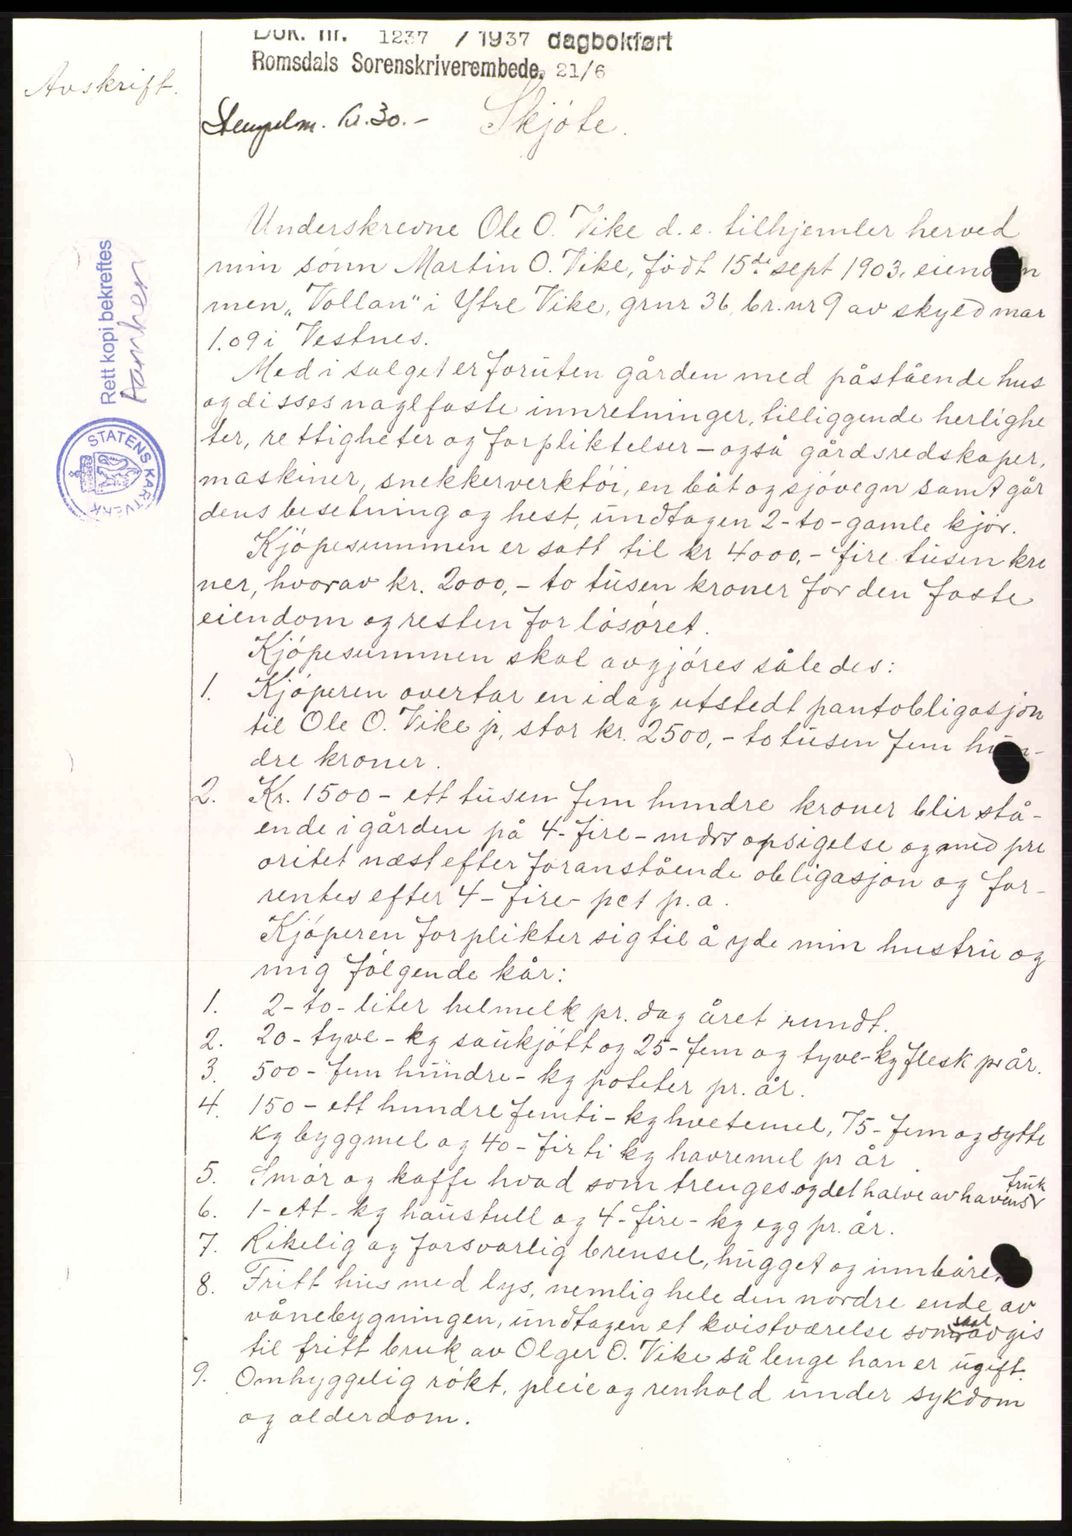 Dok. nr. 1237 / 1937 dagbokført
Romsdals Sorenskriverembede. 21/6
Avskrift.
Stempelm. kr. 30.-
Skjøte.
Rett kopi bekreftes
STATENS KARTVERK
Underskrevne Ole O. Vike d. e. tilhjemler herved
min sønn Martin O. Vike, født 15de sept 1903. eiendom
men „Vollan" i Ytre Vike, grnr 36 br. nr 9 av skyld mar
1.09 i Vestnes.
Med i salget er foruten gården med påstående hus
og disses naglfaste innretninger, tilliggende herlighe
ter, rettigheter og forpliktelser – også gårdsredskaper,
maskiner, snekkerverktøi, en båt og sjøvegn samt går
dens besetning og hest, undtagen 2-to-gamle kjør.
Kjøpesummen er satt til kr 4000,- fire tusen kro
ner, hvorav kr. 2000,- to tusen kroner for den faste
eiendom og resten for løsøret.
Kjøpesummen skal avgjøres således:
1. Kjøperen overtar en idag utstedt pantobligasjon
til Ole O. Vike jr, stor kr. 2500,- to tusen fem hun-
dre kroner.
2. Kr. 1500 - ett tusen fem hundre kroner blir stå-
ende i gården på 4-fire-mdrs opsigelse og med pri
oritet næst efter foranstående obligasjon og for-
rentes efter 4-fire- pct p. a.
Kjøperen forplikter sig til å yde min hustru og
mig følgende kår:
1. 2-to-liter helmelk pr. dag året rundt.
2. 20-tyve-kg saukjøtt og 25-fem og tyve-kg flesk pr år.
3. 500-fem hundre-kg poteter pr. år.
4. 150-ett hundre femti-kg hvetemel, 75-fem og sytti
kg byggmel og 40-firti kg havremel pr år.
5. Smør og kaffe hvad som trenges og det halve av havens frukt
6. 1-ett-kg haustull og 4-fire-kg egg pr. år.
7. Rikelig og forsvarlig brensel, hugget og innbåret.
8. Fritt hus med lys, nemlig hele den nordre ende av
vånebygningen, undtagen et kvistværelse som skal avgis
til fritt bruk av Olger O. Vike så lenge han er ugift.
9. Omhyggelig røkt, pleie og renhold under sykdom
og alderdom.